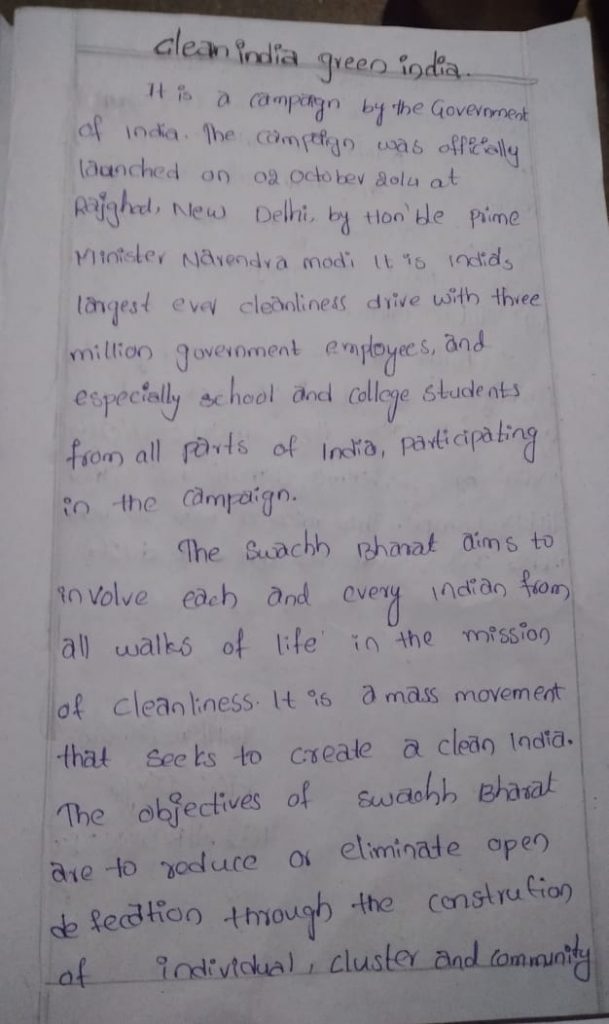 clean india green india.
It is a campaign by the Government
of india. The campaign was officially
launched on 02 october 2014 at
Rajghad, New Delhi, by Hon'ble prime
Minister Narendra modi It is india's
largest ever cleanliness drive with three
million government employees, and
especially school and college students
from all parts of India, participating
in the campaign.
The Swachh Bharat aims to
involve each and every indian from
all walks of life in the mission
of cleanliness. It is a mass movement
that seeks to create a clean India.
The objectives of swachh Bharat
are to reduce or eliminate open
defecation through the constrution
of individual, cluster and community